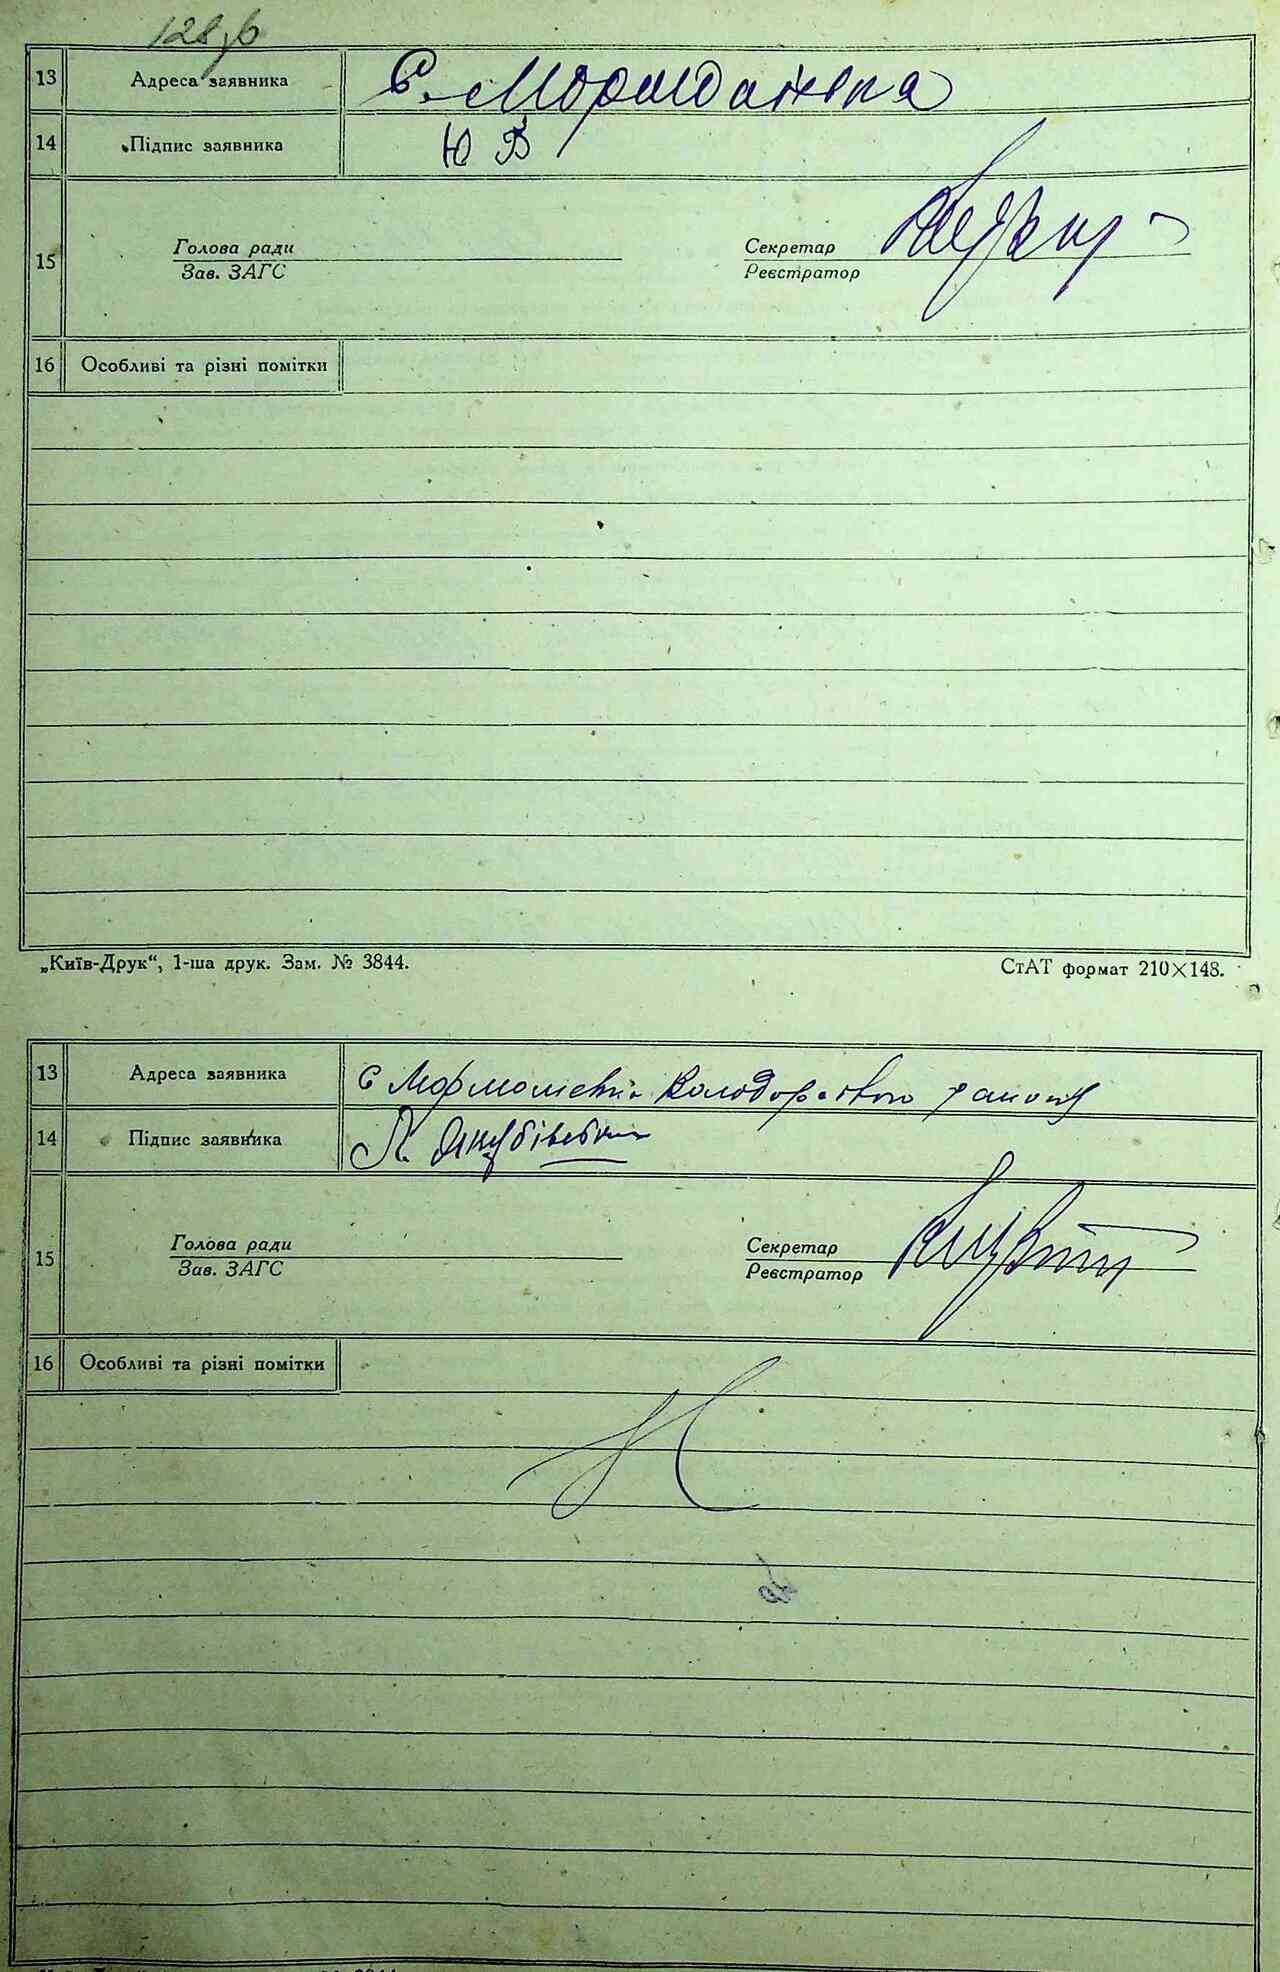 128зв
13 Адреса заявника С. Мормолаївка
14 Підпис заявника Ю В
15 Голова ради Секретар
Зав. ЗАГС Реєстратор
16 Особливі та різні помітки
„Київ-Друк“, 1-ша друк. Зам. № 3844. СтАТ формат 210×148.
13 Адреса заявника с Володарського району
14 Підпис заявника Якубівська
15 Голова ради Секретар
Зав. ЗАГС Реєстратор
16 Особливі та різні помітки